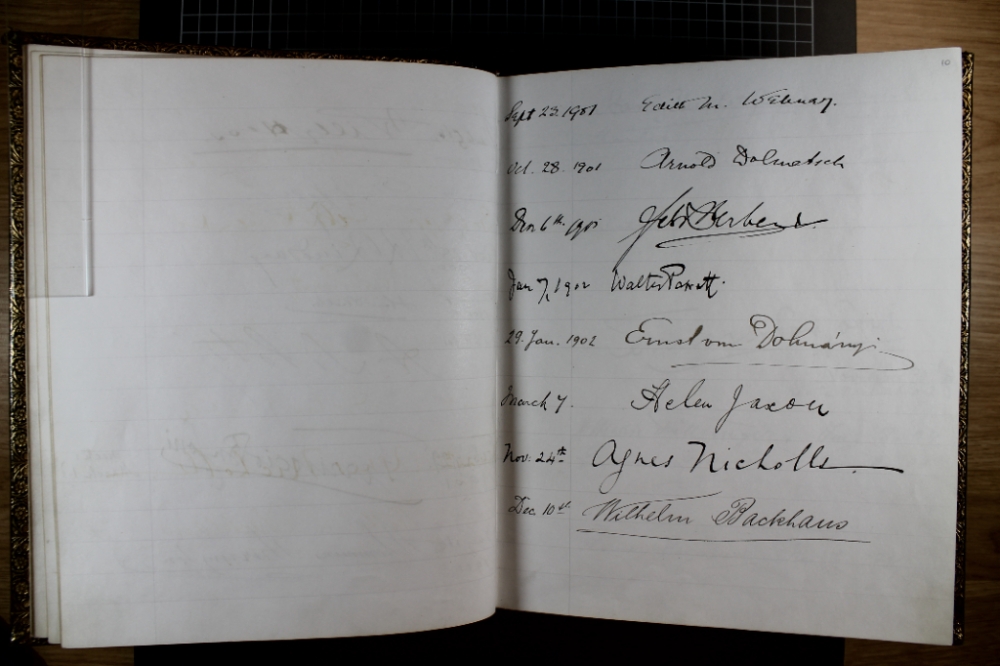 10
Sept 23. 1901 Edith M.
Oct. 28. 1901 Arnold Dolmetsch
Dec 6th. 1901
Jan 7, 1902 Walter Parratt.
29. Jan. 1902 Ernst von Dohnányi
March 7. Helen Jaxon
Nov. 24th Agnes Nicholls
Dec 10th Wilhelm Backhaus